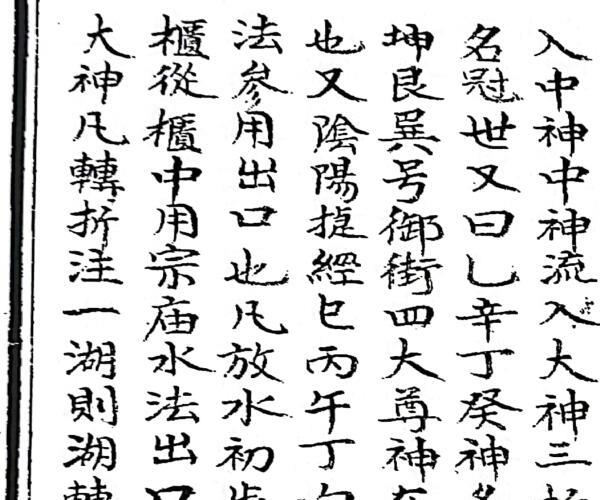 入中神中神流入大神三
名冠世又曰乚辛丁癸神
坤艮巽号御街四大尊神
也又陰陽㨗經巳丙午丁
法參用出口也凡放水初
櫃從櫃中用宗庙水法出
大神凡轉折注一湖則湖